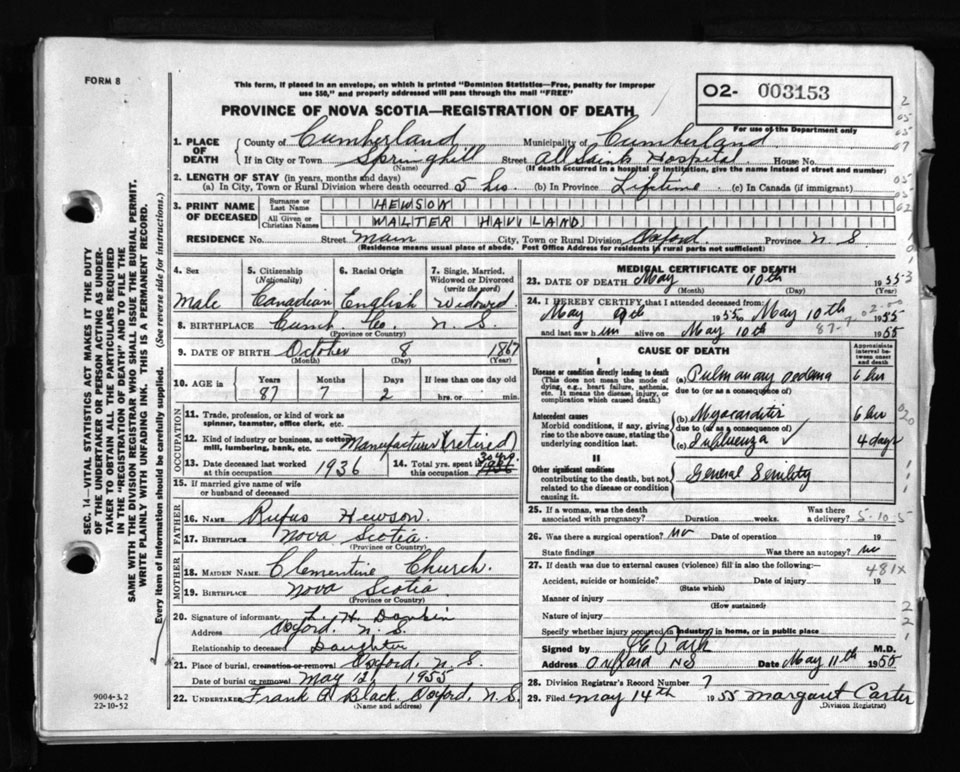 FORM 8
This form, if placed in an envelope, on which is printed "Dominion Statistics—Free, penalty for improper
use $50," and properly addressed will pass through the mail "FREE"
PROVINCE OF NOVA SCOTIA—REGISTRATION OF DEATH
02- 003153
For use of the Department only
1. PLACE OF DEATH
County of Cumberland Municipality of Cumberland
If in City or Town Springhill Street All Saints Hospital House No.
(Name) (If death occurred in a hospital or institution, give the name instead of street and number)
2. LENGTH OF STAY (in years, months and days)
(a) In City, Town or Rural Division where death occurred 5 hrs (b) In Province Lifetime (c) In Canada (if immigrant)
3. PRINT NAME OF DECEASED
Surname or Last Name HEWSON
All Given or Christian Names WALTER HAVILAND
RESIDENCE No. Street Main City, Town or Rural Division Oxford. Province N S.
(Residence means usual place of abode. Post Office Address for residents in rural parts not sufficient)
4. Sex
Male
5. Citizenship
(Nationality)
Canadian
6. Racial Origin
English
7. Single, Married,
Widowed or Divorced
(write the word)
Widowed
8. BIRTHPLACE Cumb. Co. N. S.
(Province or Country)
9. DATE OF BIRTH October 8 1867
(Month) (Day) (Year)
10. AGE in
Years Months Days If less than one day old
87 7 2 hrs. or min.
OCCUPATION
11. Trade, profession, or kind of work as
spinner, teamster, office clerk, etc.
12. Kind of industry or business, as cotton
mill, lumbering, bank, etc. Manufacturer (retired)
13. Date deceased last worked
at this occupation 1936
14. Total yrs. spent in
this occupation
15. If married give name of wife
or husband of deceased
FATHER
16. NAME Rufus Hewson.
17. BIRTHPLACE Nova Scotia
(Province or Country)
MOTHER
18. MAIDEN NAME Clementine Church.
19. BIRTHPLACE Nova Scotia
(Province or Country)
20. Signature of informant L. H.
Address Oxford, N. S.
Relationship to deceased Daughter
21. Place of burial, cremation or removal Oxford, N. S.
Date of burial or removal May 12, 1955
22. UNDERTAKER Frank G. Black, Oxford, N. S.
(Name and address)
MEDICAL CERTIFICATE OF DEATH
23. DATE OF DEATH May 10th 1955
(Month) (Day) (Year)
24. I HEREBY CERTIFY that I attended deceased from:
May 1955 to May 10th 1955
and last saw him alive on May 10th 1955
CAUSE OF DEATH
Approximate
interval be-
tween onset
and death
I
Disease or condition directly leading to death
(This does not mean the mode of
dying, e.g., heart failure, asthenia,
etc. It means the disease, injury, or
complication which caused death.)
(a) Pulmanary oedema 6 hr
due to (or as a consequence of)
Antecedent causes
Morbid conditions, if any, giving
rise to the above cause, stating the
underlying condition last.
(b) Myocarditis 6 hr
due to (or as a consequence of)
(c) Influenza ✓ 4 days
II
Other significant conditions
contributing to the death, but not
related to the disease or condition
causing it.
General Senility
25. If a woman, was the death Was there
associated with pregnancy? Duration weeks. a delivery? 5-10-5
26. Was there a surgical operation? no Date of operation 19
State findings Was there an autopsy? no
27. If death was due to external causes (violence) fill in also the following:—
481X
Accident, suicide or homicide? Date of injury 19
(State which)
Manner of injury
(How sustained)
Nature of injury
Specify whether injury occurred in industry, in home, or in public place
Signed by M.D.
Address Oxford NS Date May 11th 1955
28. Division Registrar's Record Number 7
29. Filed May 14th 1955 Margaret Carter
(Division Registrar)
SEC. 14—VITAL STATISTICS ACT MAKES IT THE DUTY
OF THE UNDERTAKER OR PERSON ACTING AS UNDER-
TAKER TO OBTAIN ALL THE PARTICULARS REQUIRED
IN THE "REGISTRATION OF DEATH" AND TO FILE THE
SAME WITH THE DIVISION REGISTRAR WHO SHALL ISSUE THE BURIAL PERMIT.
WRITE PLAINLY WITH UNFADING INK. THIS IS A PERMANENT RECORD.
Every item of information should be carefully supplied. (See reverse side for instructions.)
9004-3.2
22-10-52